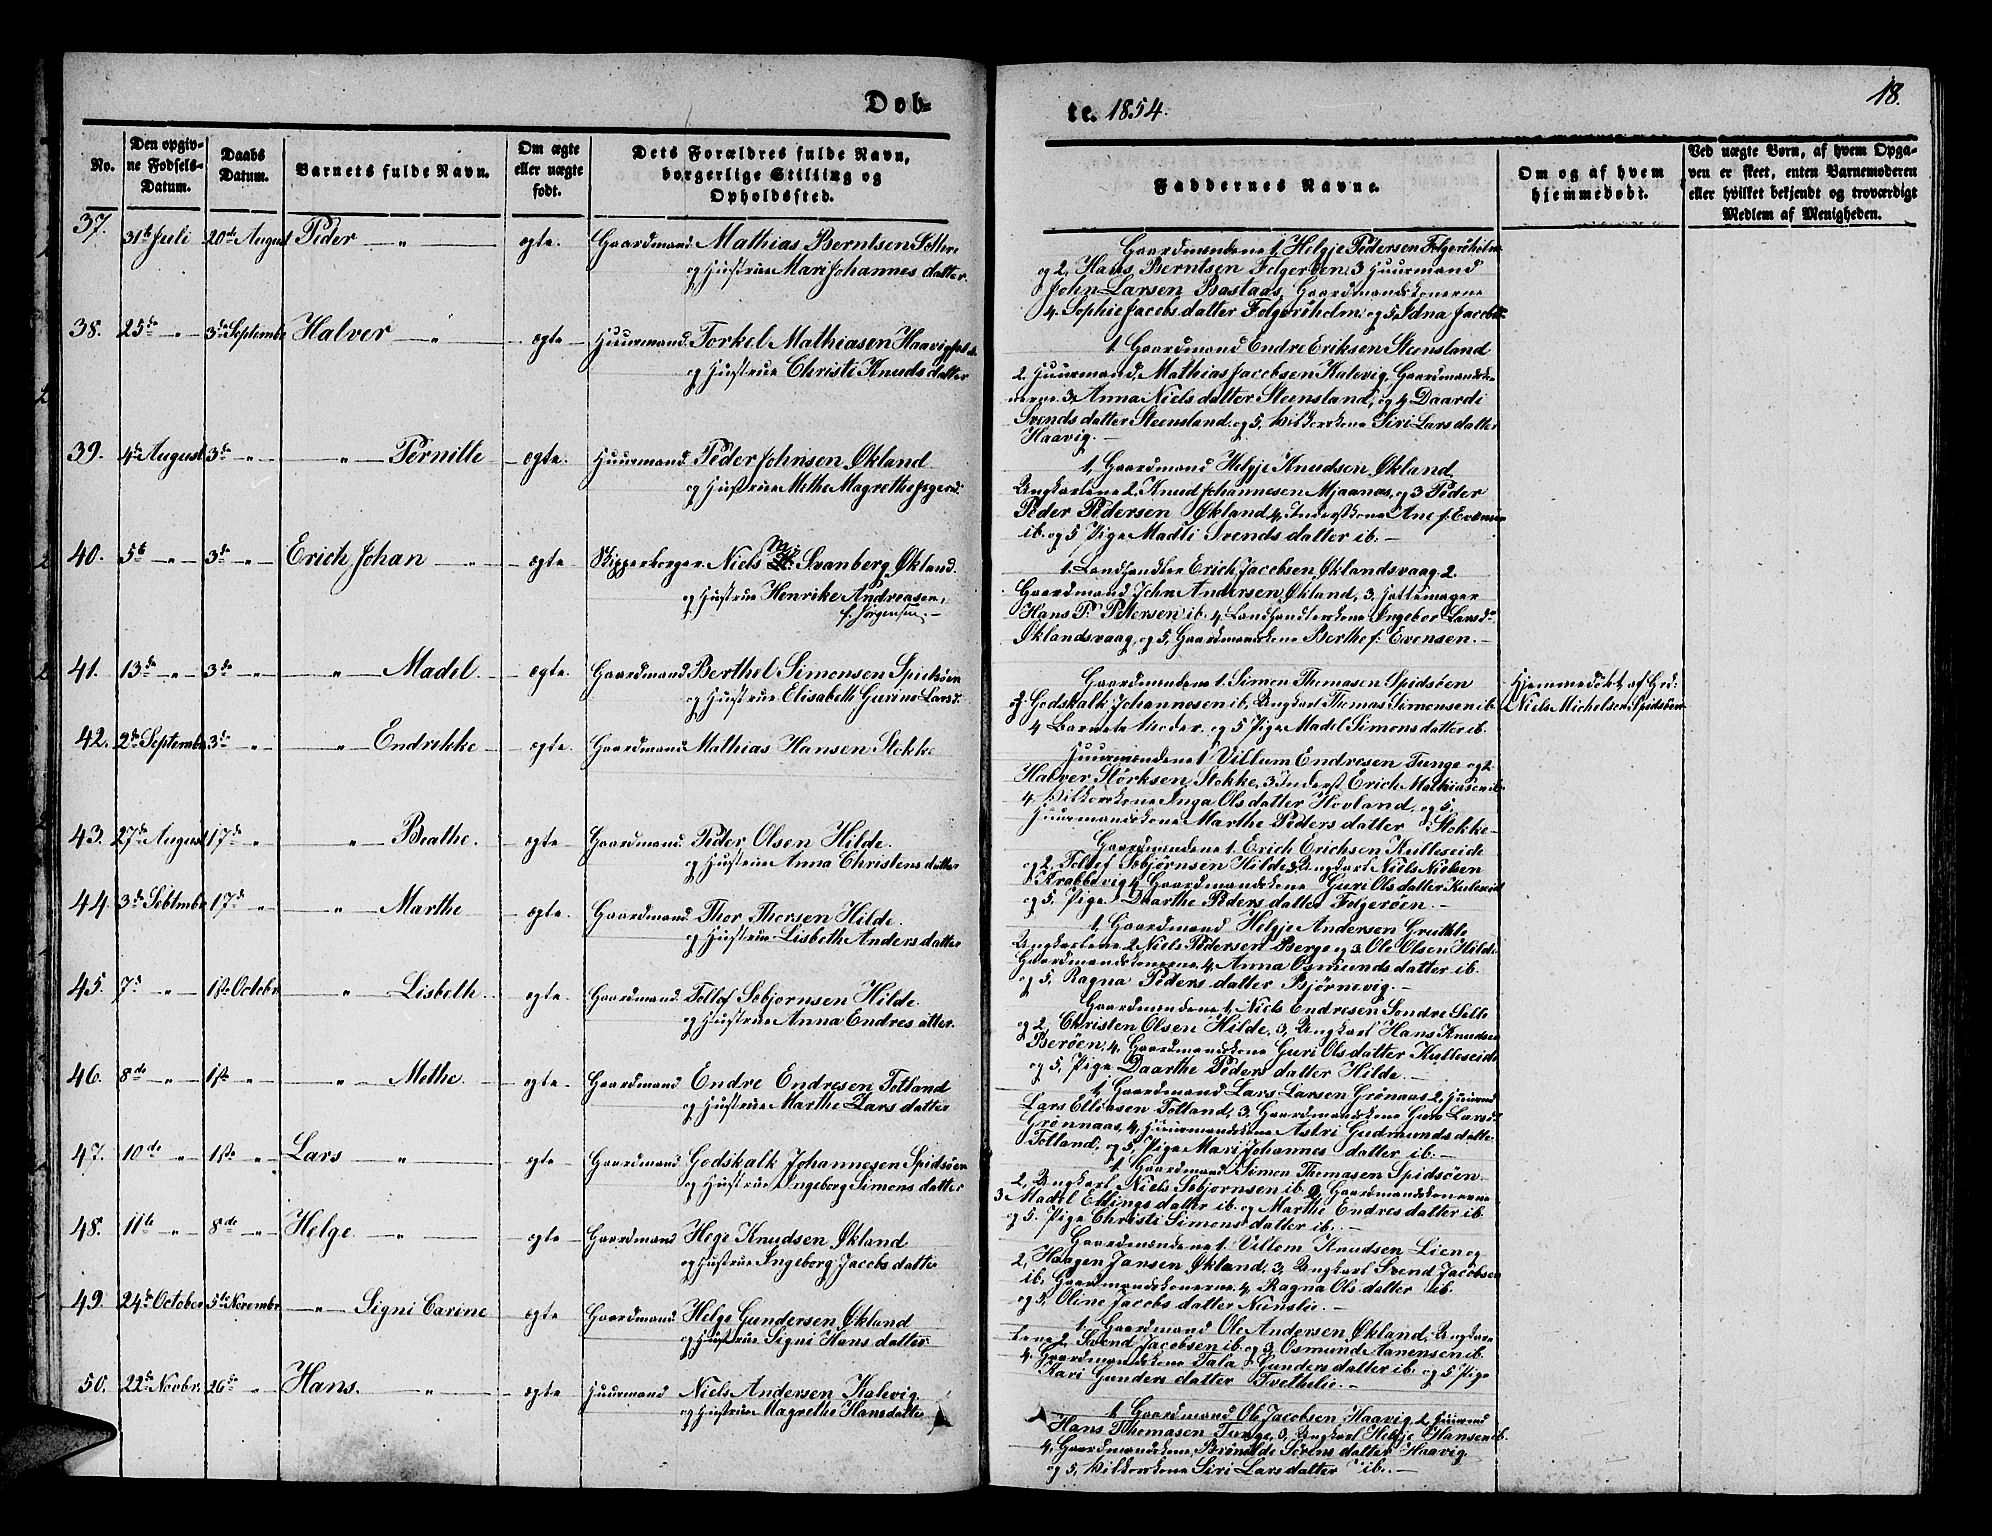 Døb-
No.
Den opgiv-
ne Fødsels-
Datum.
Daabs
Datum.
Barnets fulde Navn.
Om ægte
eller uægte
født.
Dets Forældres fulde Navn,
borgerlige Stilling og
Opholdssted.
37.
31te Juli
20de August
Peder — " —
egte.
Gaardmand. Mathias Berntsen
og Hustrue Mari Johannes datter.
38.
25de — " —
3de Septembr
Halver — " —
egte
Huurmand. Torkel Mathiasen
og Hustrue Christi Knuds datter
39.
4de August
3de — " —
" — Pernille
egte.
Huurmand. Peder Johnsen Økland
og Hustrue Methe Magrethe
40.
5te — " —
3de — " —
Erich Johan — " —
egte
Skipperborger. Niels Svanberg Økland.
og Hustrue Henrike Andreasen,
f. Jørgensen. —
41.
13de — " —
3de — " —
" — Madel.
egte.
Gaardmand. Berthel Simonsen Spidsøen
og Hustrue Elisabeth Gurine Larsd.
42.
2de Septembr
3de — " —
" Endrikke
egte.
Gaardmand Mathias Hansen Stokke
43.
27de August
17de "
" — Beathe.
egte
Gaardmand. Peder Olsen Hilde.
og Hustrue Anna Christens datter
44
3de Sebtmbr
17de "
" — Marthe
egte.
Gaardmand. Thor Thorsen Hilde.
og Hustrue Lisbethe Anders datter
45.
7de " —
1ste Octobr.
" Lisbeth.
egte
Gaardmand. Tollef Sebjornsen Hilde.
og Hustrue Anna Endres atter.
46.
8de — " —
1ste "
" — Methe.
egte.
Gaardmand Endre Endresen Totland
og Hustrue Marthe Lars datter
47.
10de "
1ste "
Lars "
egte
Gaardmand Godskalk Johannesen Spidsøen
og Hustrue Ingeborg Simons datter
48.
11te "
8de "
Helge. — " —
egte
Gaardmand Hege Knudsen Økland
og Hustrue Ingeborg Jacobs datter
49.
24de October
5te Novembr.
— " — Signi Carine
egte
Gaardmand. Helge Gundersen Økland
og Hustrue Signi Hans datter.
50.
22de Novbr.
26de "
Hans. — " —
egte
Huurmand Niels Andersen Kalevig.
og Hustrue Magrethe Hansdatter
te. 1854.
18.
Faddernes Navne.
Om og af hvem
hjemmedøbt.
Ved uægte Børn, af hvem Opga-
ven er skeet, enten Barnemoderen
eller hvilket bekjendt og troværdigt
Medlem af Menigheden.
Gaardmændene 1, Helgje Pedersen Folgerøholm
og 2, Hans Berntsen Folgerøen, 3 Huurmand
John Larsen Bastaas, Gaardmandskonerne
4. Sophie Jacobs datter Folgerøholm, og 5, Edna Jacobs
1. Gaardmand Endre Eriksen Steensland
2. Huurmand, Mathias Jacobsen Kalevig. Gaardmandsko-
nerne 3, Anna Niels datter Steensland, og 4, Daardi
Svends datter Steensland. og 5, Vilkorskone Siri Lars datter
Haavig. —
1, Gaardmand Helgje Knudsen Økland
Ungkarlene 2, Knud Johannesen Mjaanæs, og 3 Peder
Peder Pedersen Økland 4, Inderstkone Ane f. Evensen
ib. og 5, Pige Madli Svends datter ib. —
1. Landhandler Erich Jacobsen Øklandsvaag 2.
Gaardmand John Andersen Økland, 3,
Hans P. Pettersen ib. 4, Landhandlerskone Ingebor Larsdr
Øklandsvaag, og 5, Gaardmandskone Berthe f. Evensen. —
Gaardmændene 1. Simon Thomasen Spidsøen
2. Godskalk Johannesen ib, Ungkarl Thomas Simonsen ib.
4 Barnets Moder. og 5 Pige Madel Simonsdatter ib.
Hjemmedøbt af Grd:
Niels Michelsen Spidsøen
Huurmændene 1 Villum Endresen Tunge og 2
Halver Størksen Stokke, 3 Inderst Erich Mathiasen ib.
4, Vilkorskone Inga Ols datter Hovland, og 5,
Huurmandskone Marthe Peders datter Stokke —
Gaardmændene 1. Erich Erichsen Kulleseide
og 2, Tollef Sebjørnsen Hilde 3, Ungkarl Niels Nielsen
Krabbevig 4, Gaardmandskone Guri Ols datter
og 5, Pige Daarthe Peders datter Folgerøen. —
1, Gaardmand Helgje Andersen
Ungkarlene 2 Niels Pedersen Berge og 3. Ole Olsen Hilde
Gaardmandskonerne 4, Anna Osmunds datter ib.
og 5. Ragna Peders datter Bjørnevig. —
Gaardmændene 1, Niels Endresen Søndre
og 2, Christen Olsen Hilde, 3, Ungkarl Hans Knudsen
Berøen, 4, Gaardmandskone Guri Ols datter Kulleseide
og 5, Pige Daarthe Peders datter Hilde. —
1, Gaardmand Lars Larsen Grønaas 2,
Lars Elliasen Totland, 3, Gaardmandskone Guro Larsd
Grønnaas, 4, Huurmandskone Astri Gudmunds datter
Totland, og 5, Pige Mari Johannes datter ib. —
1 Gaardmand Simon Thomasen Spidsøen
2, Ungkarl Niels Sebjornsen ib. Gaardmandskonerne
3 Madel Ellings datter ib. og Marthe Endres datter ib.
og 5. Pige Christi Simons datter ib. —
Gaardmændene 1. Villem Knudsen Lien og
2, Haagen Jansen Økland, 3, Ungkarl Svend Jacobsen
ib. Gaardmandskonerne 4, Ragna Ols datter ib.
og 5, Oline Jacobs datter —
1. Gaardmand Ole Andersen Økland, Ungkar-
lene 2, Svend Jacobsen ib. og 3, Osmund Aanensen ib.
4, Gaardmandskone Tala Gunders datter ib. og 5 Pige
Kari Gunders datter Tvethelie. —
1, Gaardmand Ole Jacobsen Haavig, 2,
Hans Thomasen Tunge, 3, Ungkarl Helgje Hansen ib.
4, Gaardmandskone Brønilde Sørens datter Haavig
og 5, Vilkorskone Siri Lars datter ib. —